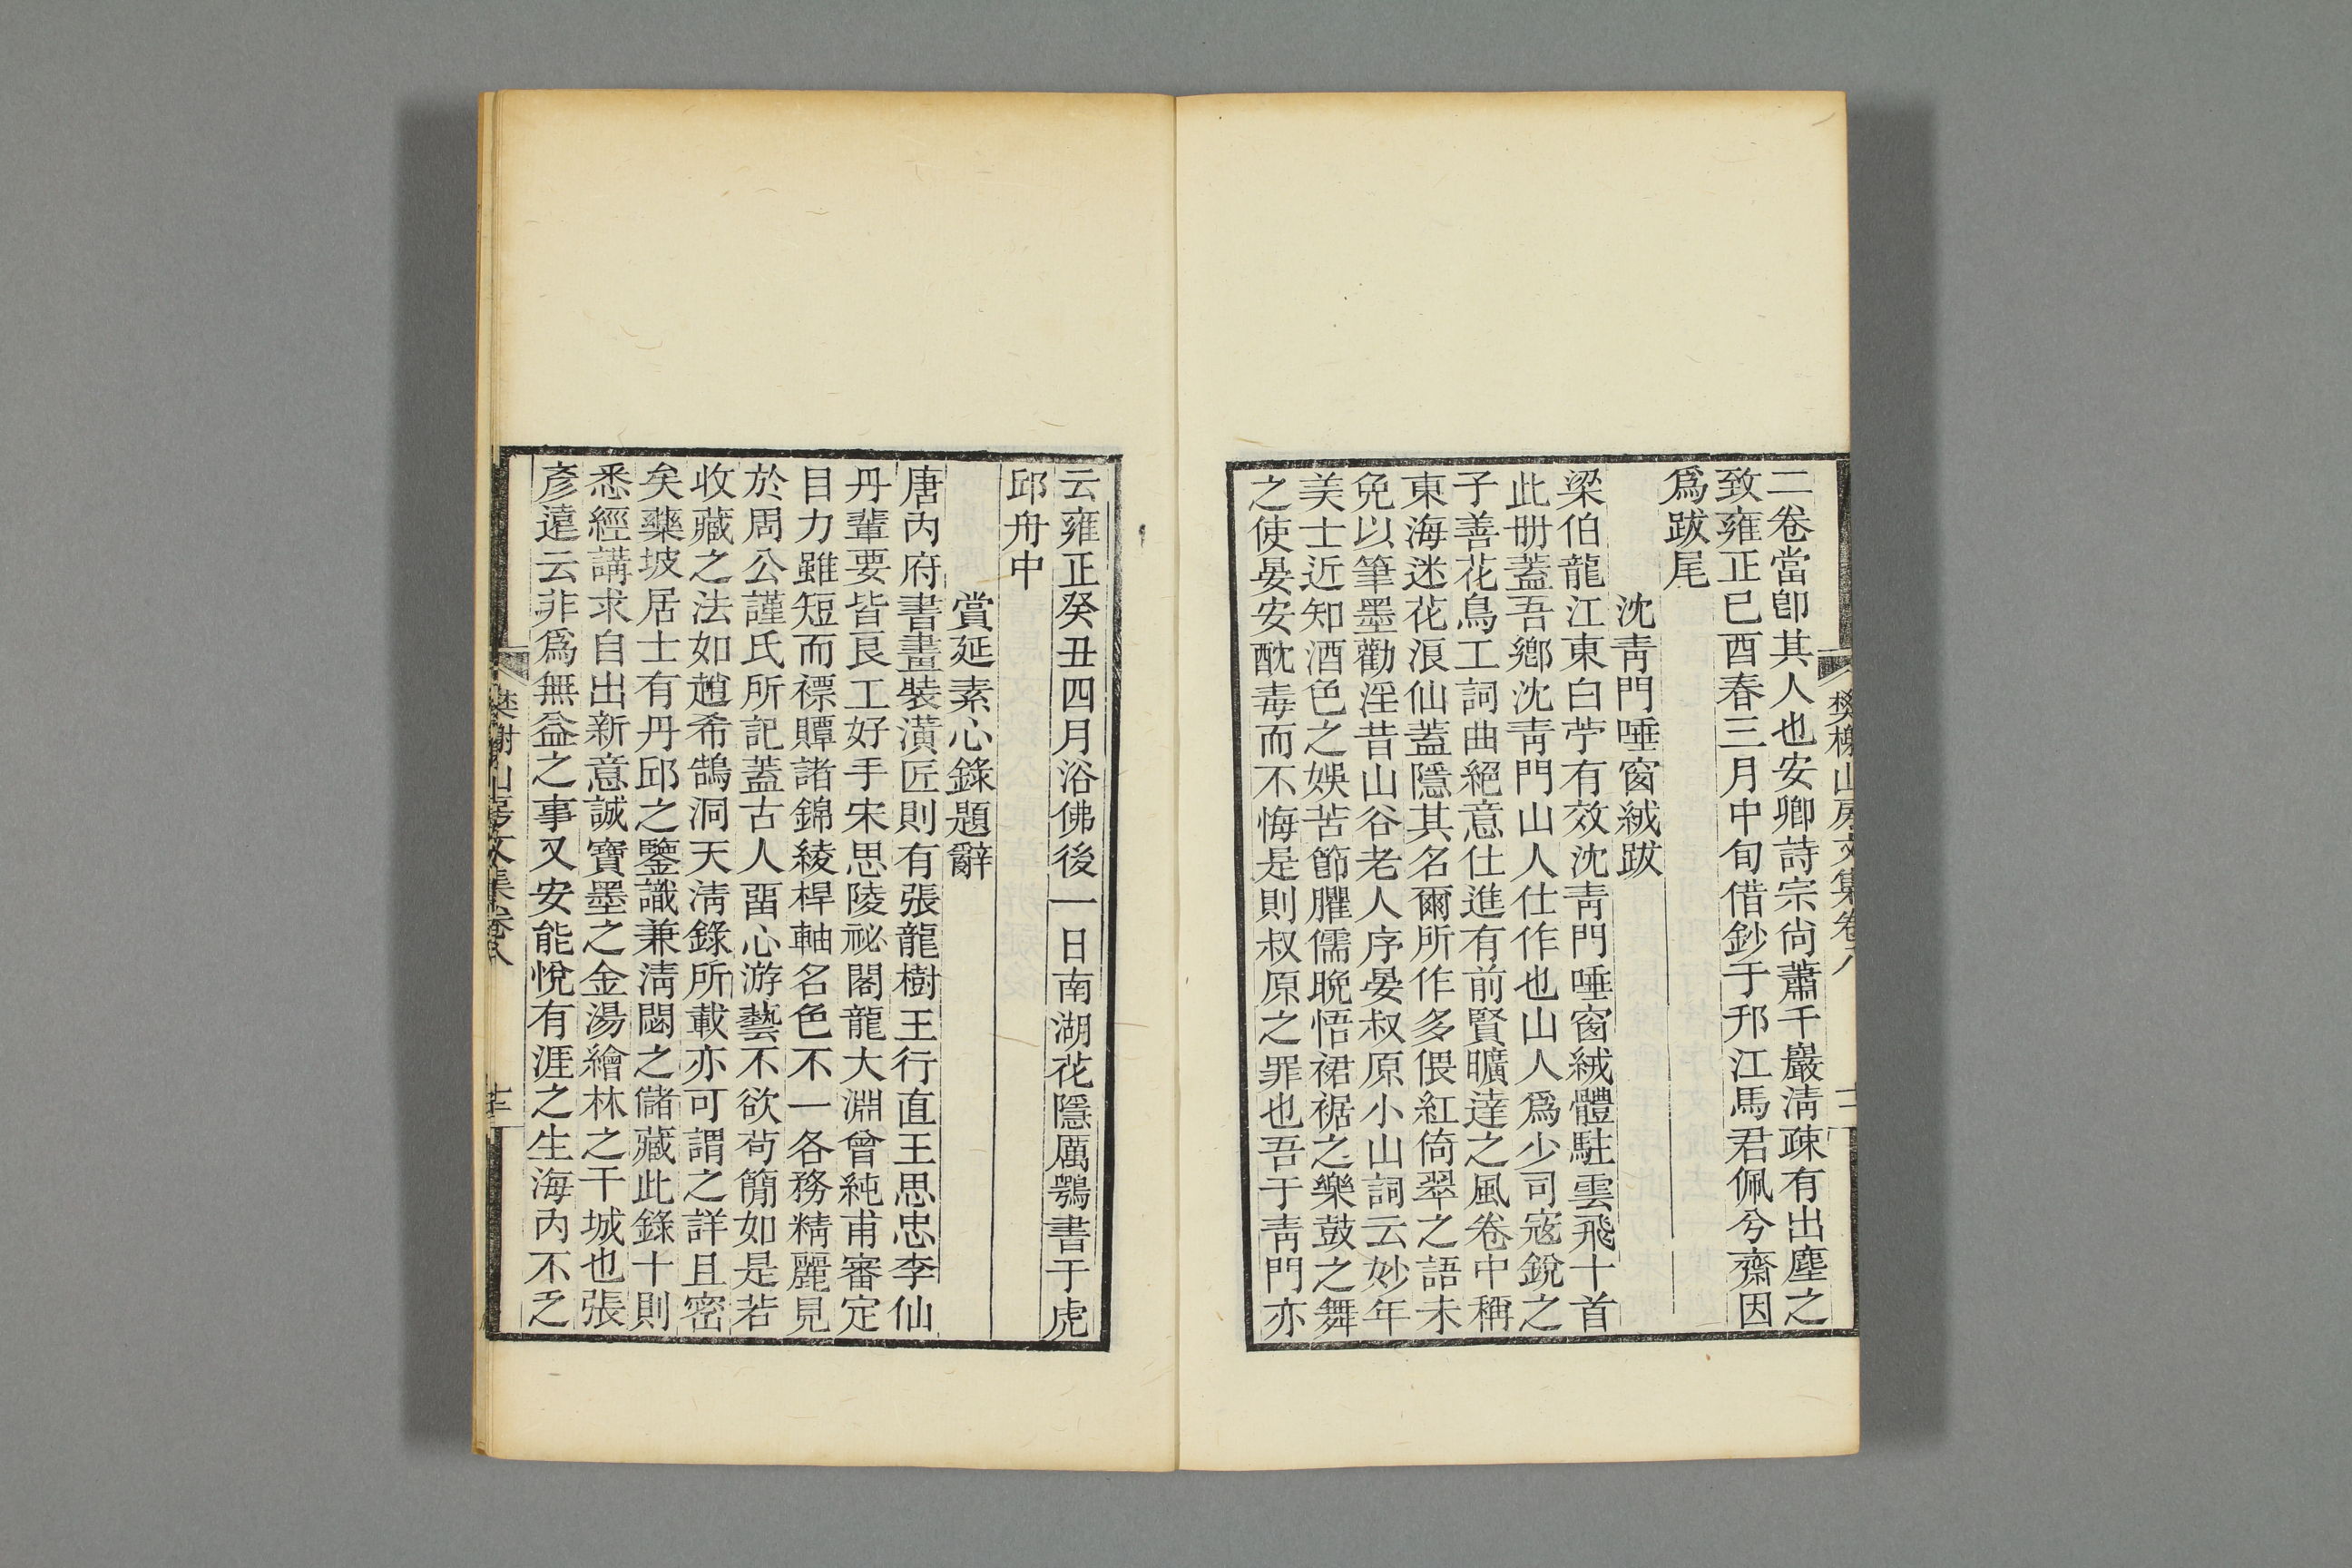 樊榭山房文集卷八 十二
二卷當卽其人也安卿詩宗尙蕭千巖淸疎有出塵之
致雍正己酉春三月中旬借鈔于邗江馬君佩兮齋因
爲跋尾
沈靑門唾窗絨跋
梁伯龍江東白苧有效沈靑門唾窗絨體駐雲飛十首
此册蓋吾鄉沈靑門山人仕作也山人爲少司寇銳之
子善花鳥工詞曲絕意仕進有前賢曠達之風卷中稱
東海迷花浪仙蓋隱其名爾所作多偎紅倚翠之語未
免以筆墨勸淫昔山谷老人序晏叔原小山詞云妙年
美士近知酒色之娛苦節臞儒晩悟裙裾之樂鼓之舞
之使晏安酖毒而不悔是則叔原之罪也吾于靑門亦
云雍正癸丑四月浴佛後一日南湖花隱厲鶚書于虎
邱舟中
賞延素心錄題辭
唐內府書畫裝潢匠則有張龍樹王行直王思忠李仙
丹輩要皆良工好手宋思陵祕閣龍大淵曾純甫審定
目力雖短而褾贉諸錦綾桿軸名色不一各務精麗見
於周公謹氏所記蓋古人畱心游藝不欲苟簡如是若
收藏之法如趙希鵠洞天淸錄所載亦可謂之詳且密
矣藥坡居士有丹邱之鑒識兼淸閟之儲藏此錄十則
悉經講求自出新意誠寶墨之金湯繪林之干城也張
彥遠云非爲無益之事又安能悅有涯之生海內不乏
樊榭山房文集卷八 十三